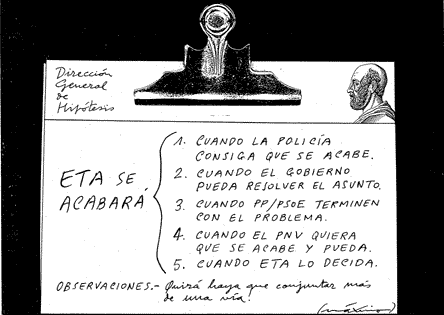 Dirección
General
de
Hipótesis
ETA SE
ACABARÁ
1. CUANDO LA POLICÍA
CONSIGA QUE SE ACABE.
2. CUANDO EL GOBIERNO
PUEDA RESOLVER EL ASUNTO.
3. CUANDO PP/PSOE TERMINEN
CON EL PROBLEMA.
4. CUANDO EL PNV QUIERA
QUE SE ACABE Y PUEDA.
5. CUANDO ETA LO DECIDA.
OBSERVACIONES.- Quizá haya que conjuntar más
de una vía.
(máximo)